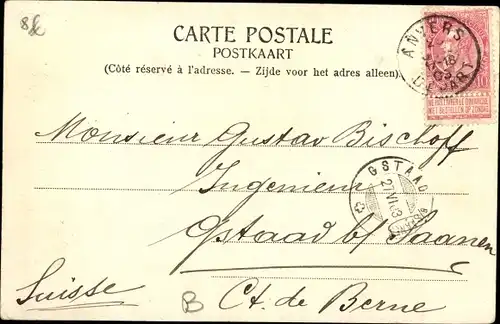 8
CARTE POSTALE
POSTKAART
(Côté réservé à l'adresse. — Zijde voor het adres alleen)
ANVERS
DÉPART
NE PAS LIVRER LE DIMANCHE
NIET BESTELLEN OP ZONDAG
Monsieur Gustav Bischoff
GSTAAD
27 VI 03
Ingenieur
Gstaad b/ Saanen
Suisse
B Ct. de Berne